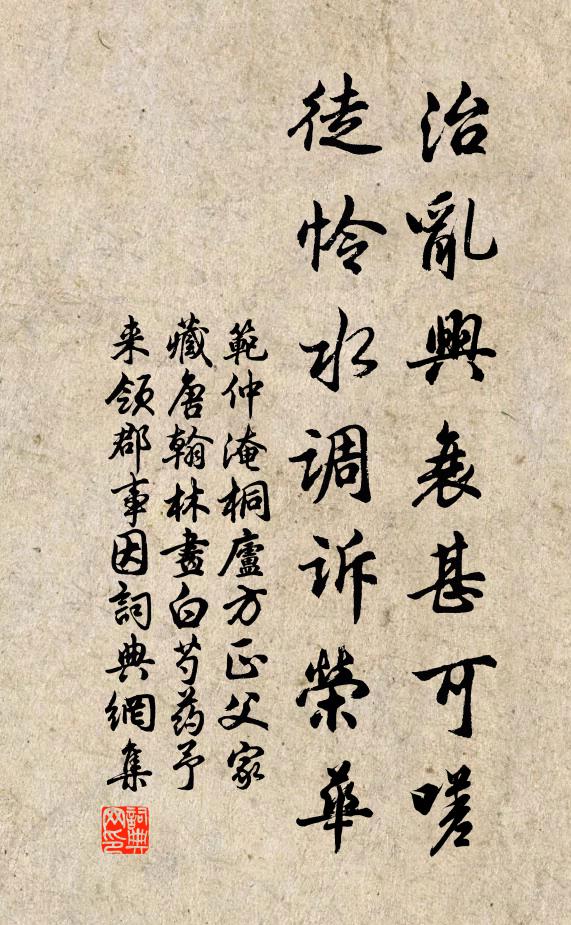 治亂興衰甚可嗟
徒怜水調訴榮華
範仲淹桐廬方正父家
藏唐翰林畫白芍药予
来领郡事因詞典網集
詞典网印